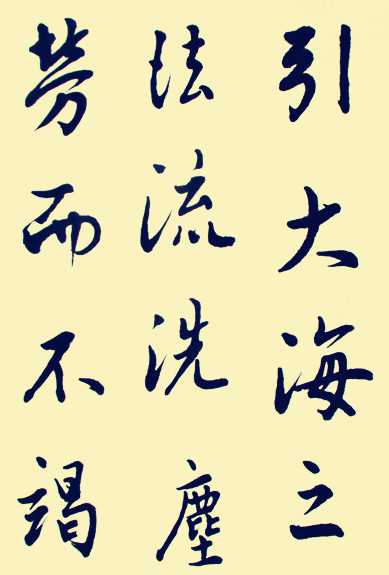 引大海之
法流洗塵
勞而不竭